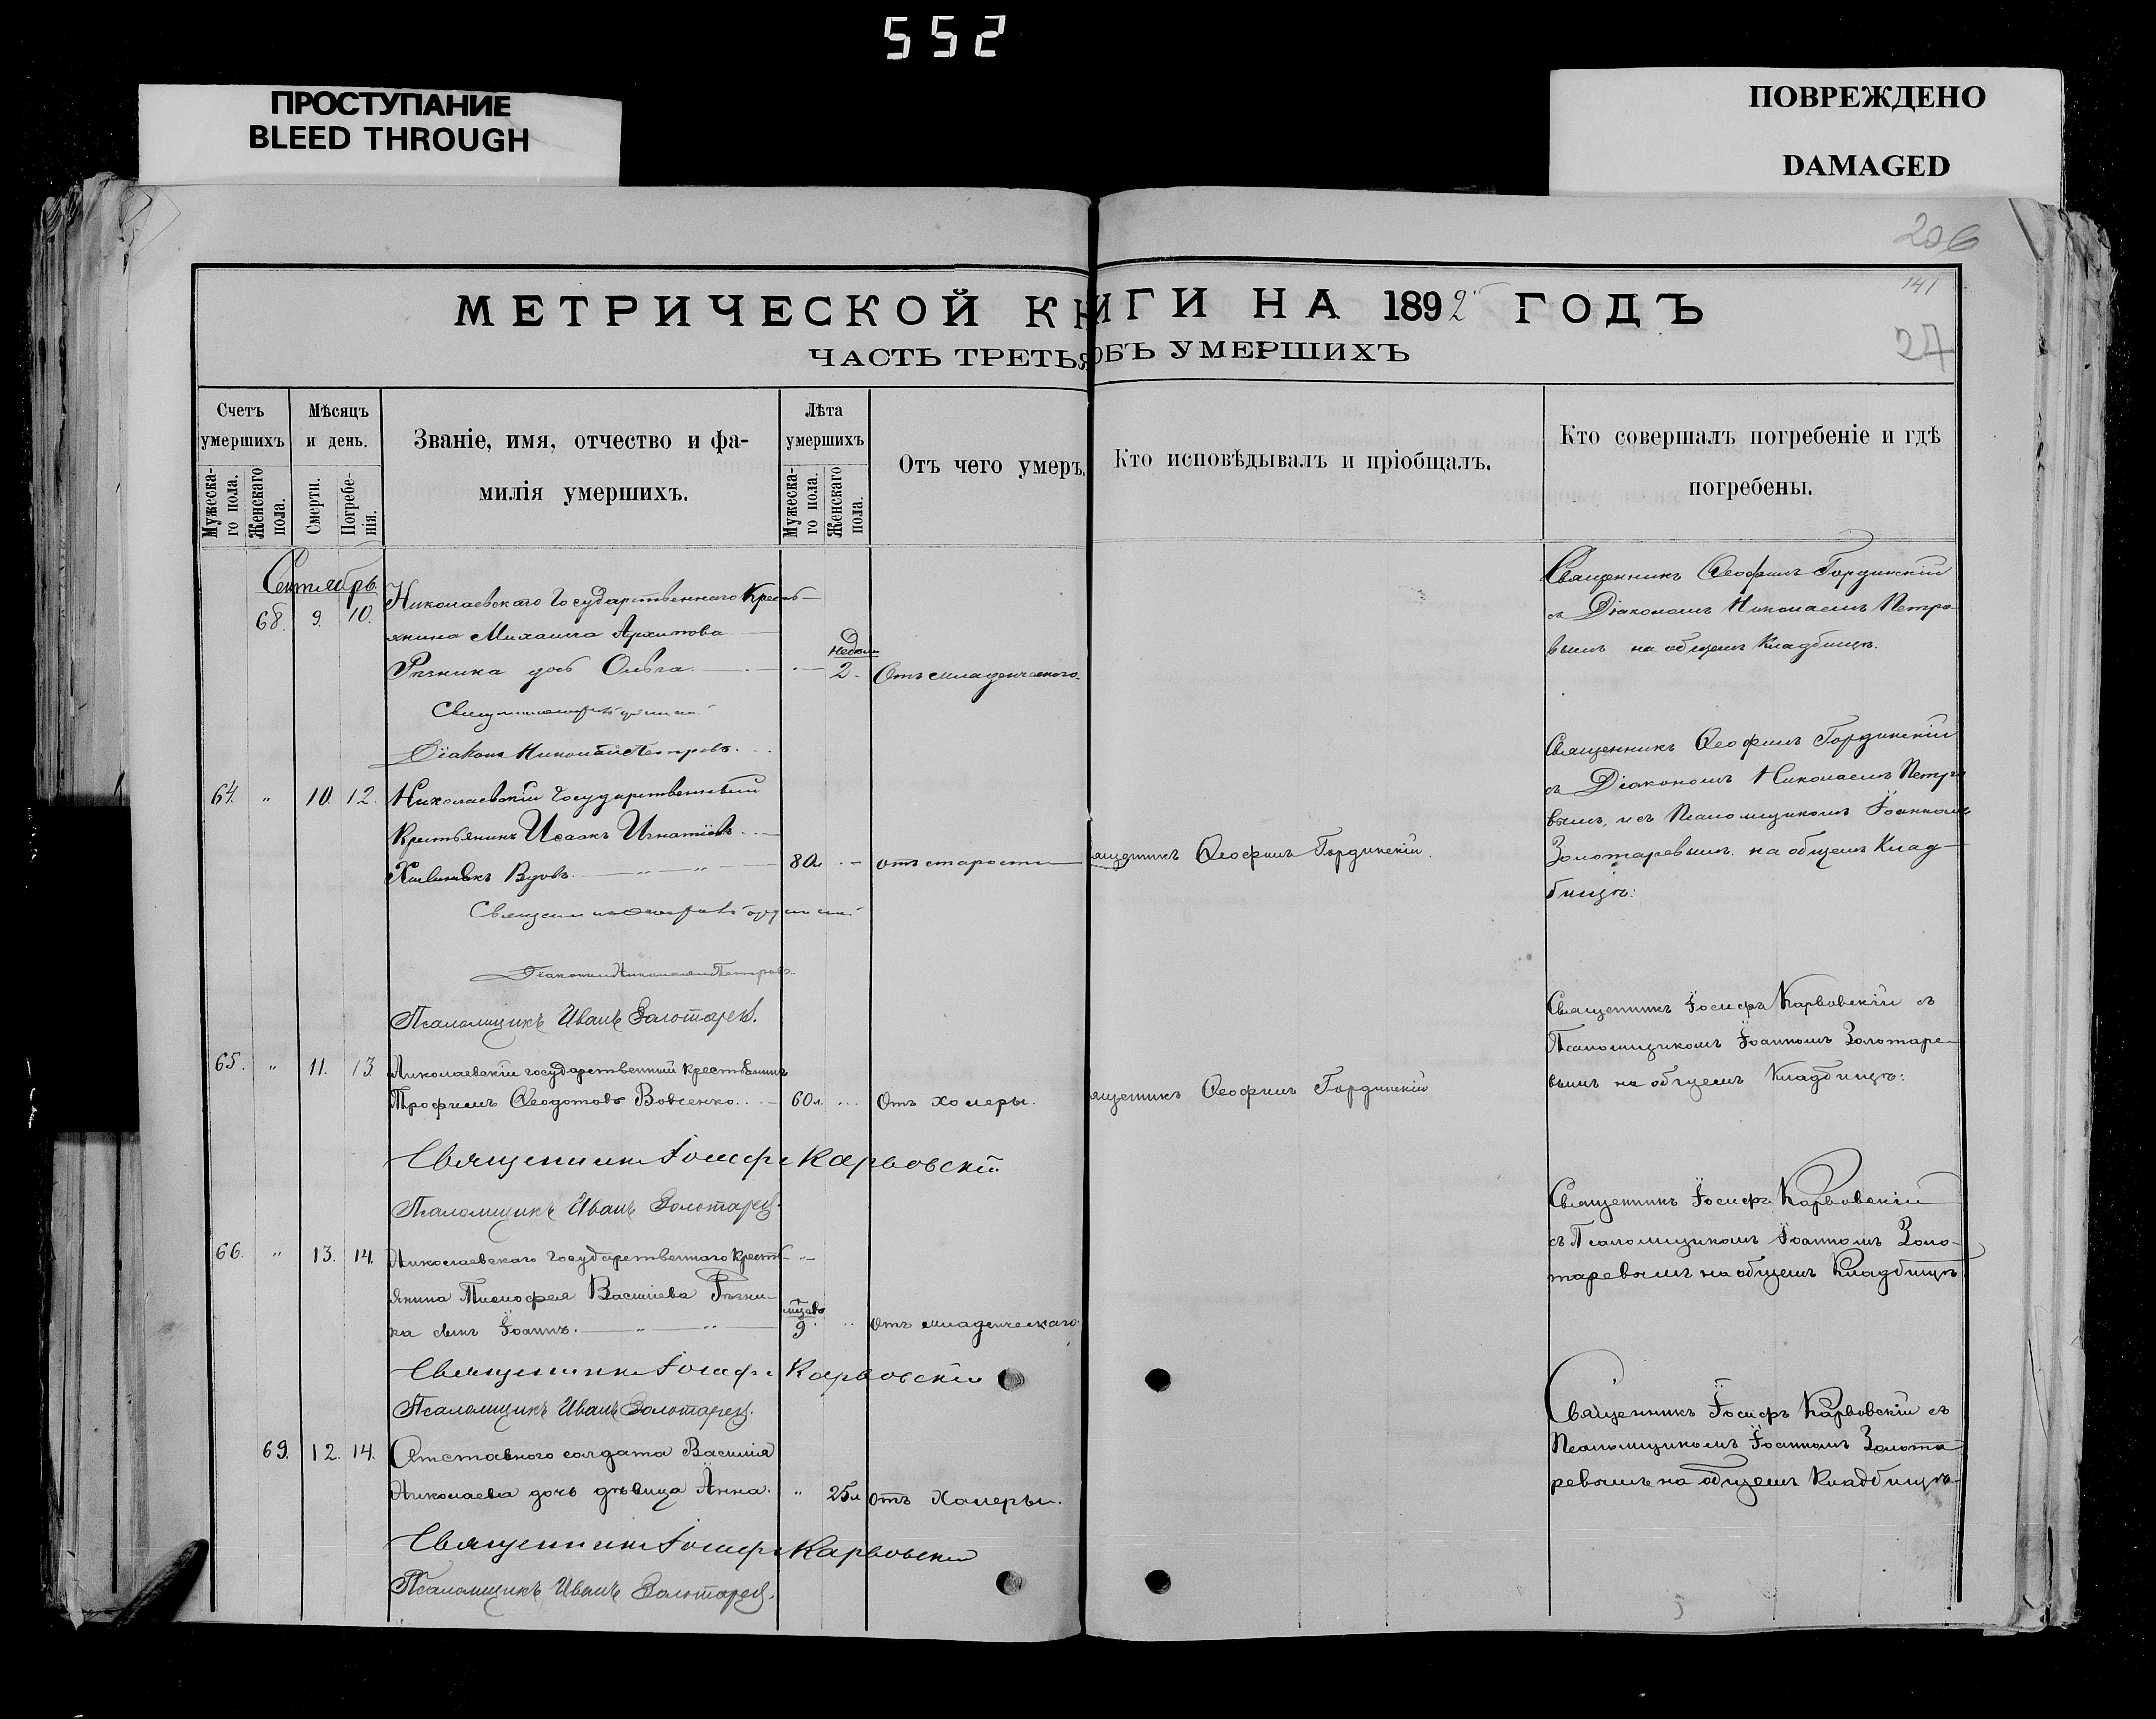 552
ПРОСТУПАНИЕ
BLEED THROUGH
ПОВРЕЖДЕНО
DAMAGED
206
141
27
МЕТРИЧЕСКОЙ КНИГИ НА 1892 ГОДЪ
ЧАСТЬ ТРЕТЬЯ ОБЪ УМЕРШИХЪ
Счетъ умершихъ
Мужеска-го пола.
Женскаго пола.
Мѣсяцъ и день.
Смерти.
Погребе-нія.
Званіе, имя, отчество и фа-
милія умершихъ.
Лѣта умершихъ
Мужеска-го пола.
Женскаго пола.
Отъ чего умеръ.
Кто исповѣдывалъ и пріобщалъ.
Кто совершалъ погребеніе и гдѣ
погребены.
Сентябрь
68. 9. 10. Николаевскаго Государственнаго Кресть-
янина Михаила Архипова
Рѣзника дочь Ольга недѣли 2. Отъ младенческаго.
Священникъ Ѳеофилъ Гординскій
съ Діакономъ Николаемъ Петро-
вымъ на общемъ Кладбищѣ.
Діаконъ Николай Петровъ.
64. " 10. 12. Николаевскій Государственный
Крестьянинъ Исаакъ Игнатіевъ
Вдовъ 80 л. отъ старости
ященникъ Ѳеофилъ Гординскій.
Священникъ Ѳеофилъ Гординскій
съ Діакономъ Николаемъ Петро
вымъ, и съ Псаломщикомъ Іоанномъ
Золотаревымъ. на общемъ Клад-
бищѣ:
Діаконъ Николай Петровъ
Псаломщикъ Иванъ Золотарев.
65. " 11. 13. Николаевскій государственный крестьянинъ
Трофимъ Ѳеодотовъ Вовченко. 60 л. Отъ холеры.
ященникъ Ѳеофилъ Гординскій
Священникъ Іосифъ Карвовскій съ
Псаломщикомъ Іоанномъ Золотаре-
вымъ на общемъ Кладбищѣ:
Священникъ Іосифъ Карвовскій
Псаломщикъ Иванъ Золотарев.
66. " 13. 14. Николаевскаго Государственнаго Кресть-
янина Тимофея Василіева Рѣзни-
ка сынъ Іоаннъ. мѣсяцевъ 9. Отъ младенческаго
Священникъ Іосифъ Карвовскій
съ Псаломщикомъ Іоанномъ Золо-
таревымъ на общемъ Кладбищѣ
Священникъ Іосифъ Карвовскій
Псаломщикъ Иванъ Золотарев.
69. 12. 14. Отставного солдата Василія
Николаева дочь дѣвица Анна. " 25 л отъ Холеры.
Священникъ Іосифъ Карвовскій съ
Псаломщикомъ Іоанномъ Золота-
ревымъ на общемъ Кладбищѣ.
Священникъ Іосифъ Карвовскій
Псаломщикъ Иванъ Золотарев.